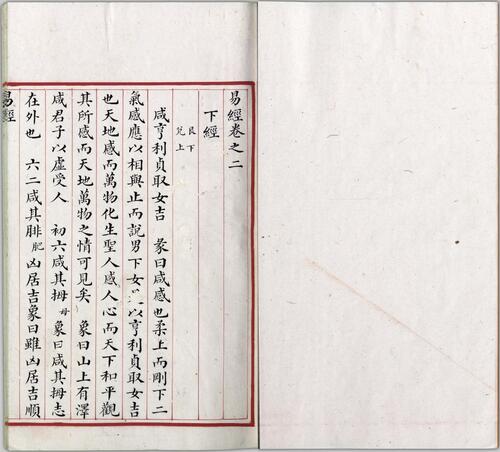 易經卷之二
下經
艮下
兌上
咸亨利貞取女吉　彖曰咸感也柔上而剛下二
氣感應以相與止而說男下女以亨利貞取女吉
也天地感而萬物化生聖人感人心而天下和平觀
其所感而天地萬物之情可見矣　象曰山上有澤
咸君子以虛受人　初六咸其拇母　象曰咸其拇志
在外也　六二咸其腓肥凶居吉象曰雖凶居吉順
易經